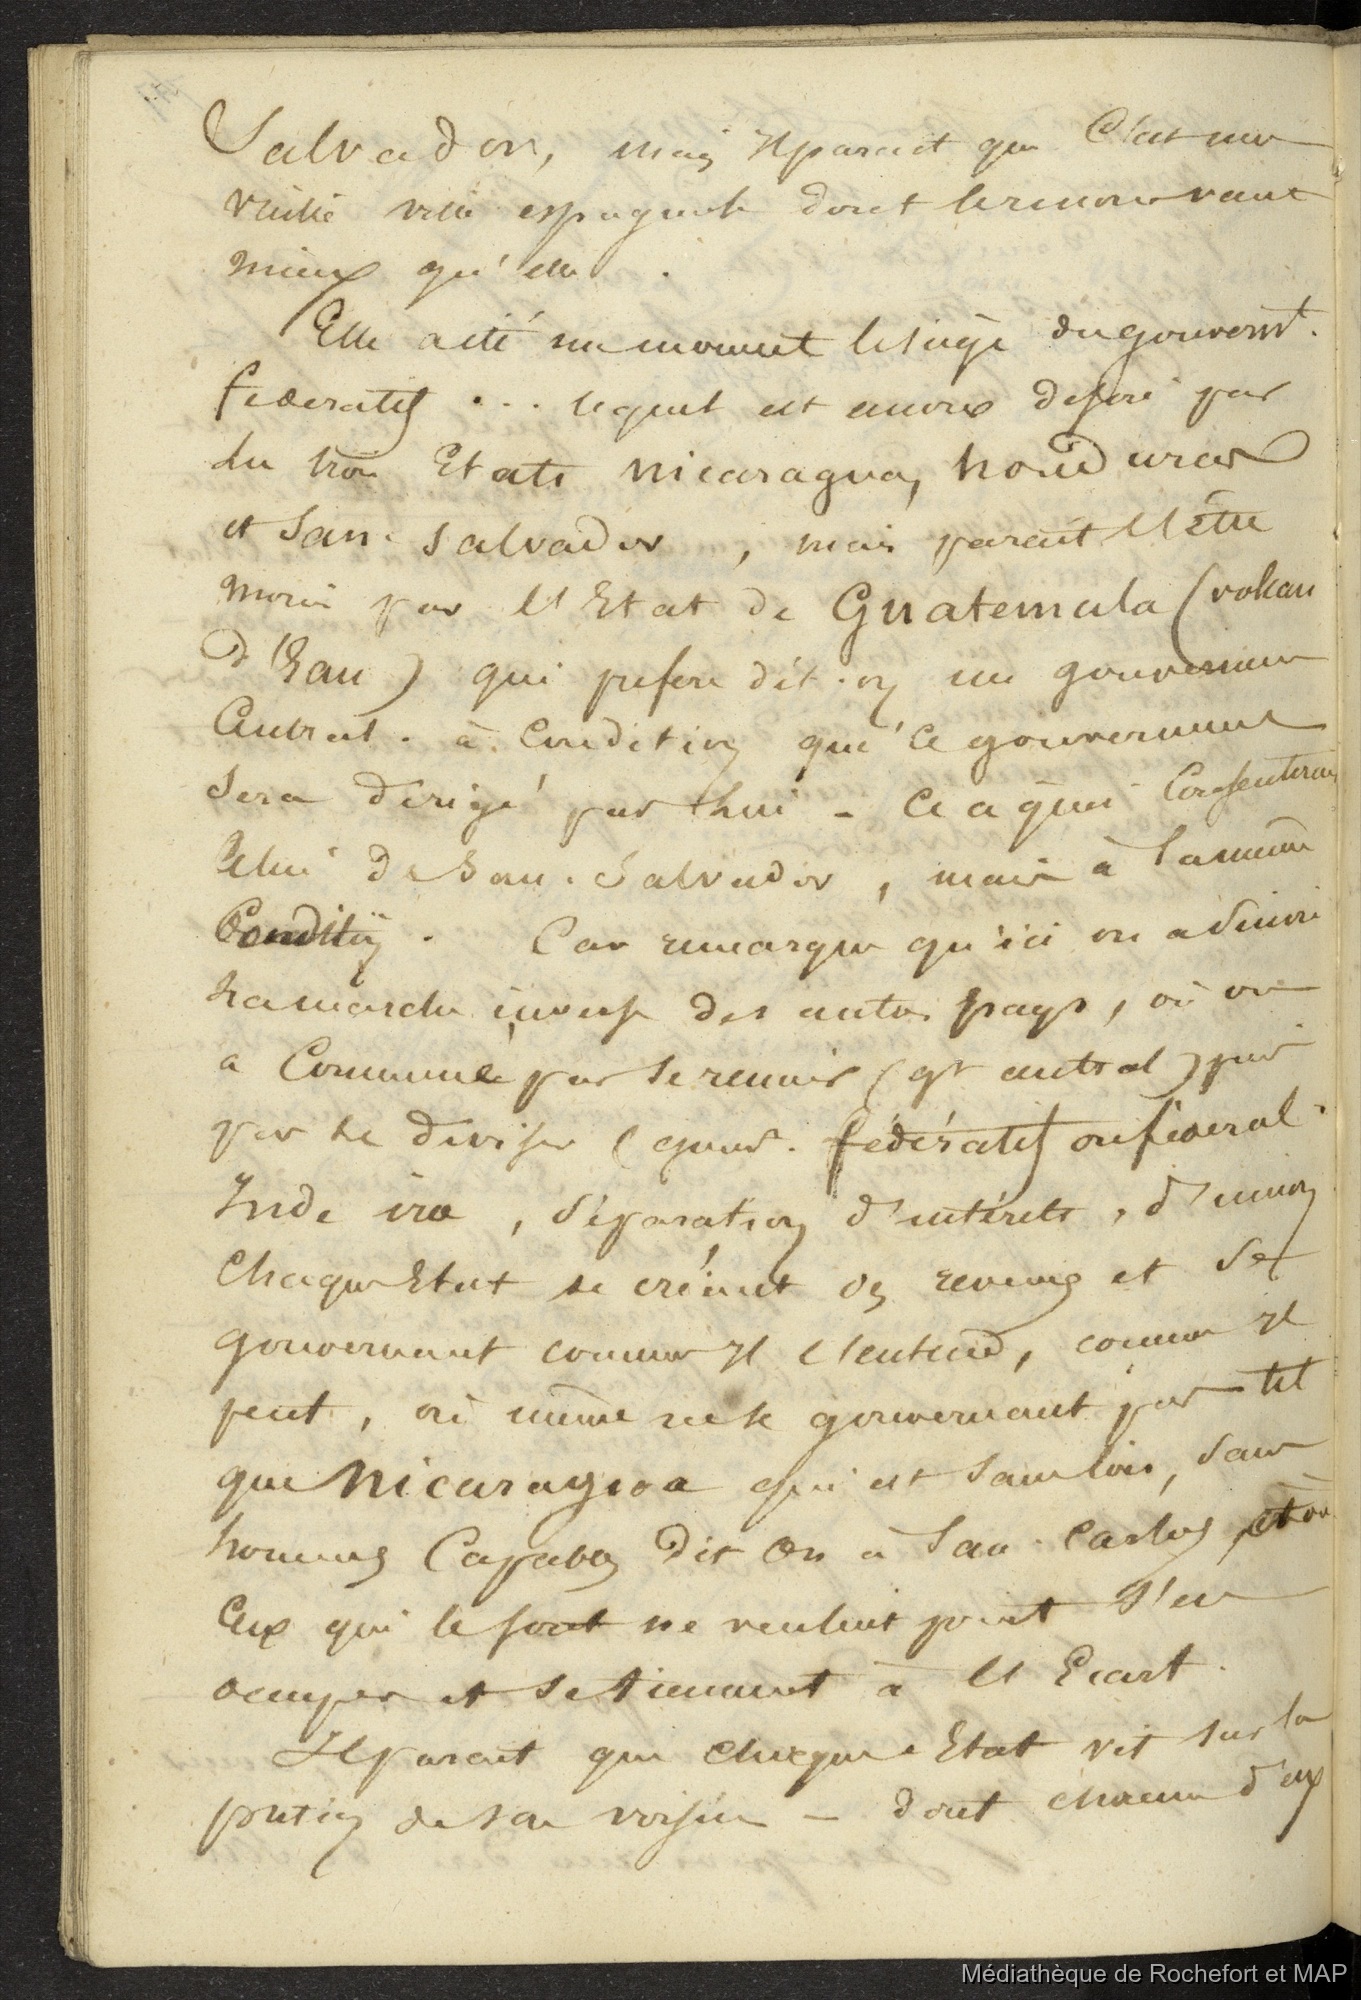 Salvador, mais Il parait que C'est une
vieille ville espagnole dont le renom vaut
mieux qu'elle .
Elle a été un moment le siège du gouvernt.
fédératif ... lequel est encore désiré par
les trois Etats Nicaragua, honduras
et San. Salvador , mais parait l'être
moins par l'Etat de Guatemala (volcan
d'Eau) qui prefere dit-on un gouvernement
Central . à Condition que ce gouvernement
sera dirigé par lui - Ce à quoi Consentirait
Celui de San. Salvador , mais à la même
Condition . Car remarque qu'ici on a suivi
la marche inverse des autres pays, où on
a Commencé par se reunir (gt central) puis
par se diviser ( gouvt. fédératif ou féderal .
Inde irae , séparation d'intérêts , d'union
Chaque Etat se créant des revenus et se
gouvernant comme Il l'entend, comme Il
peut , où même ne se gouvernant pas tel
que Nicaragoa qui est sans lois, sans
hommes Capables dit on à San. Carlos, et où
Ceux qui le sont ne veulent point s'en
occuper et se tiennent à l'Ecart .
Il parait que chaque Etat vit sur la
de son voisin - dont chacun d'eux
Médiathèque de Rochefort et MAP